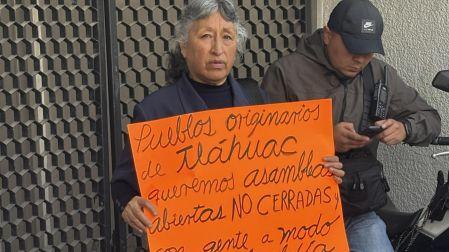 Pueblos originarios
de Tláhuac
queremos asambleas
abiertas NO CERRADAS y
con gente a modo
NIKE